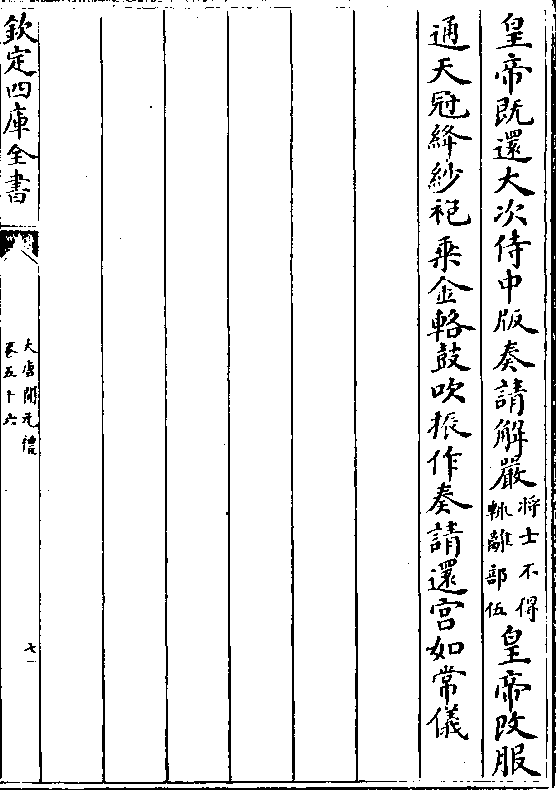 皇帝既還大次侍中版奏請解嚴將士不得輙離部伍皇帝改服
通天冠絳紗袍乗金輅鼓吹振作奏請還宫如常儀
欽定四庫全書
大唐開元禮
卷五十六
七